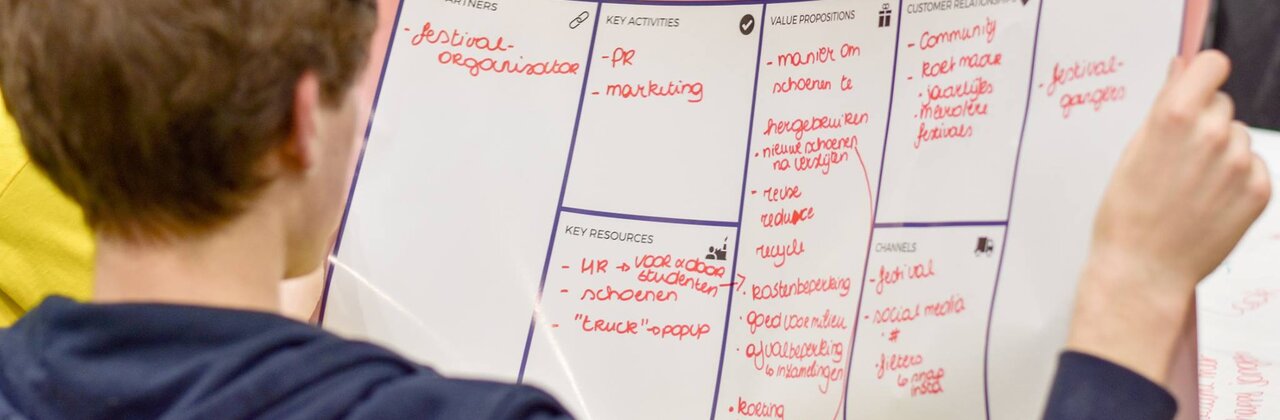 ARTNERS
- festival-
organisator
KEY ACTIVITIES
- PR
- marketing
KEY RESOURCES
- HR → voor & door
studenten
- schoenen
- "truck" → popup
VALUE PROPOSITIONS
- manier om
schoenen te
hergebruiken
• nieuwe schoenen
na verslijten
- reuse
reduce
recycle
• kostenbeperking
• goed voor milieu
• afvalbeperking
↳ inzamelingen
• korting
CUSTOMER RELATIONSHIPS
- Community
- jaarlijks
• meerdere
festivals
CHANNELS
- festival
- social media
• #
- filters
↳ snap
insta
- festival-
gangers